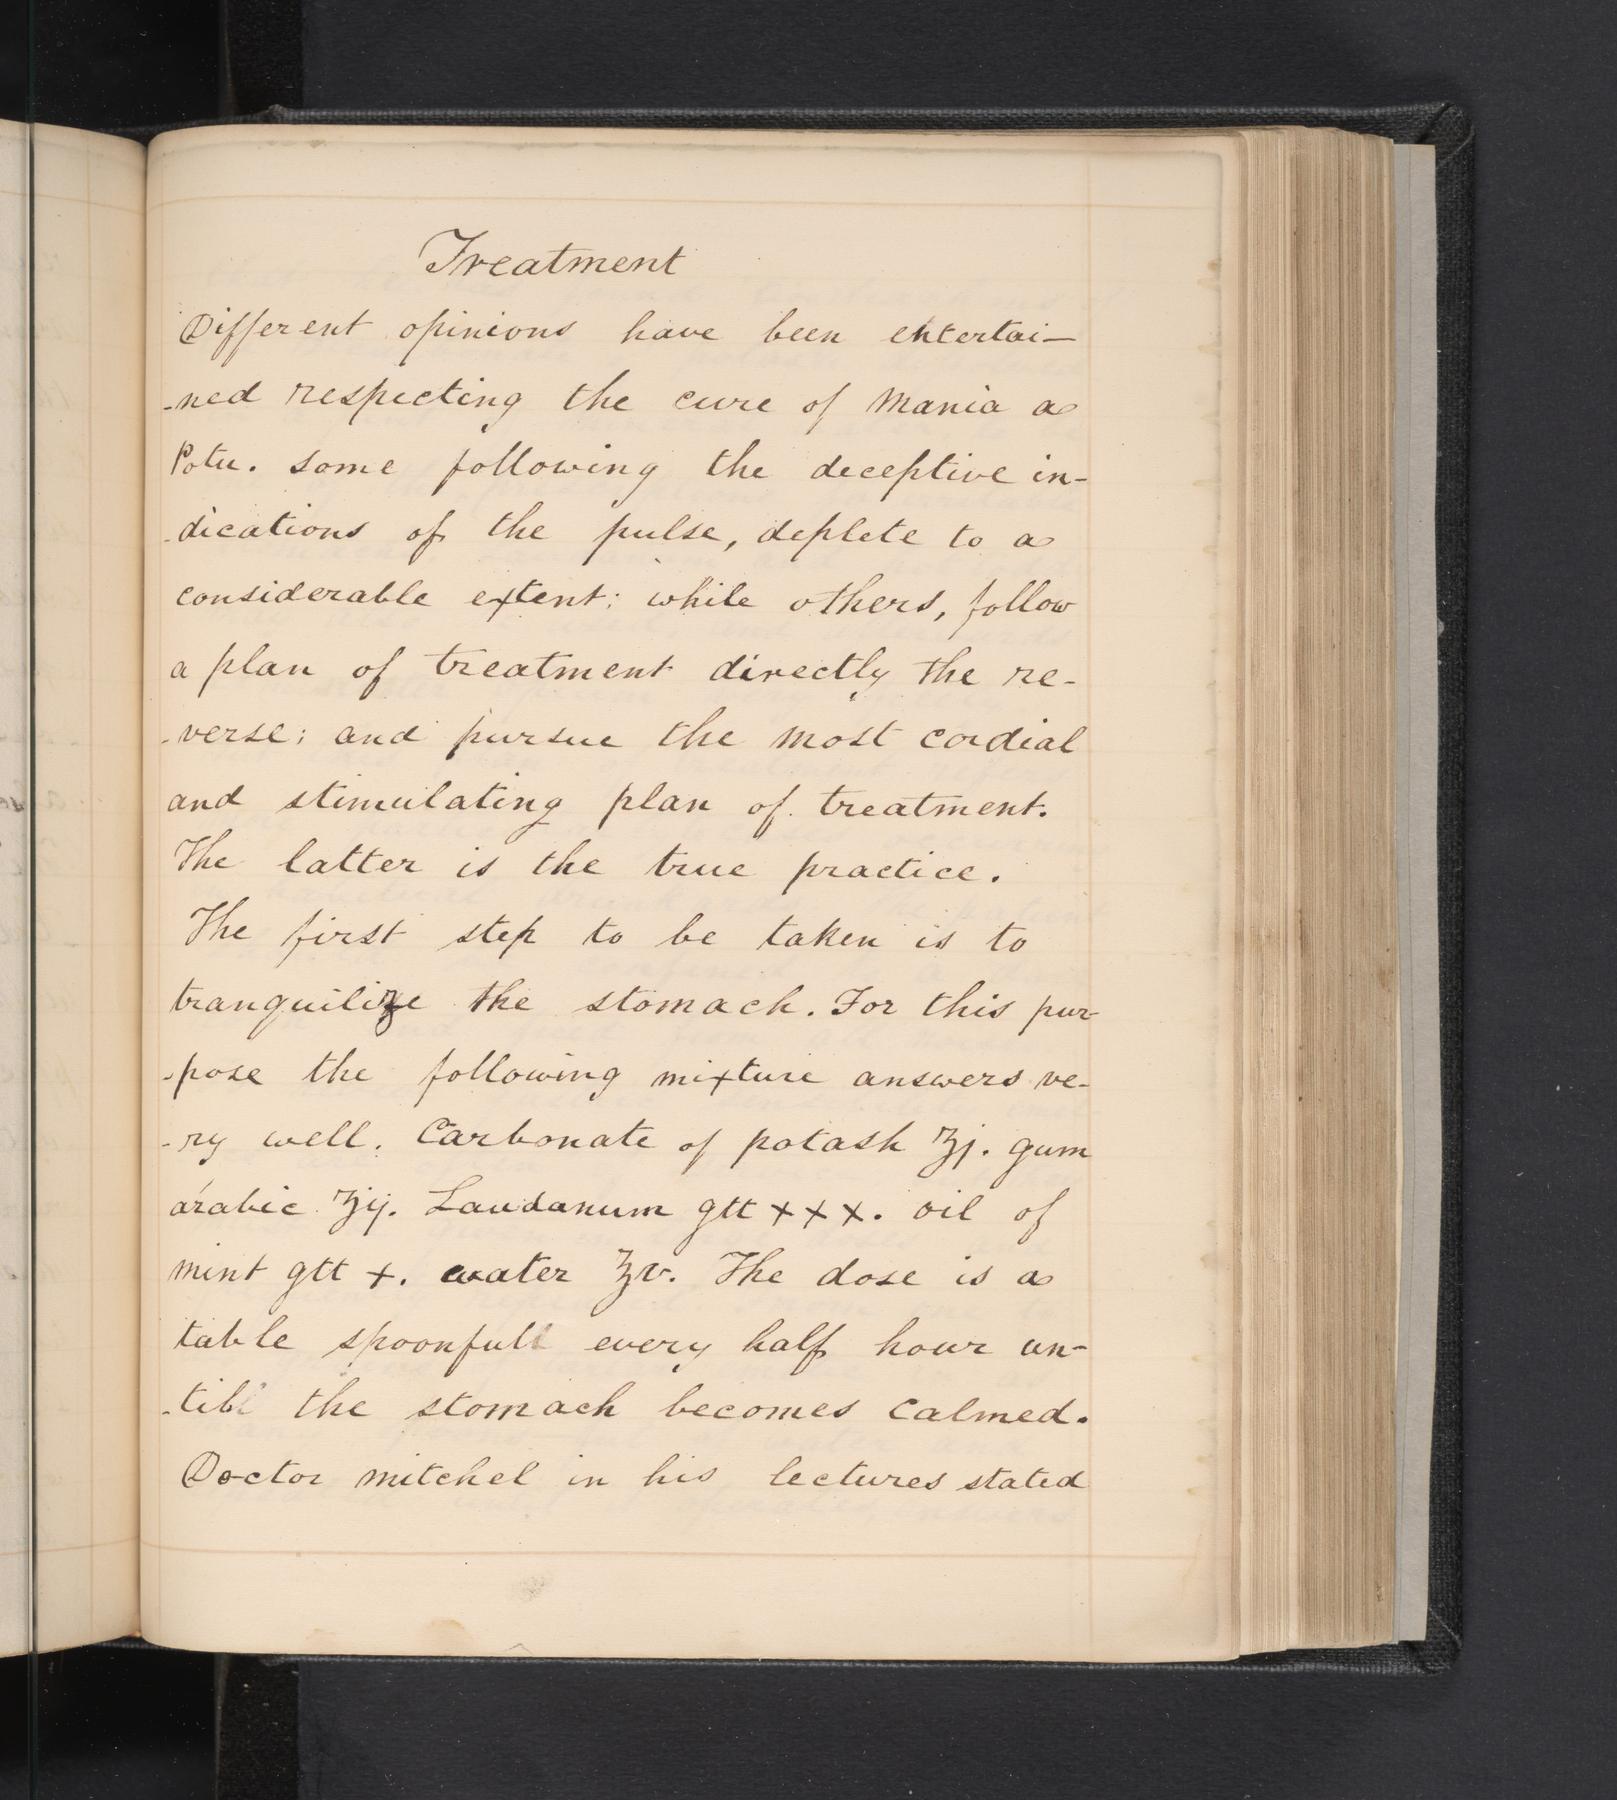 Treatment
Different opinions have been entertai—
-ned respecting the cure of Mania a
Potu. some following the deceptive in-
-dications of the pulse, deplete to a
considerable extent; while others, follow
a plan of treatment directly the re-
-verse; and pursue the most cordial
and stimulating plan of treatment.
The latter is the true practice.
The first step to be taken is to
tranquilize the stomach. For this pur-
-pose the following mixture answers ve-
-ry well. Carbonate of potash ʒj. gum
arabic ʒij. Laudanum gtt xxx. oil of
mint gtt x. water ℥v. The dose is a
table spoonfull every half hour un-
-till the stomach becomes calmed.
Doctor mitchel in his lectures stated